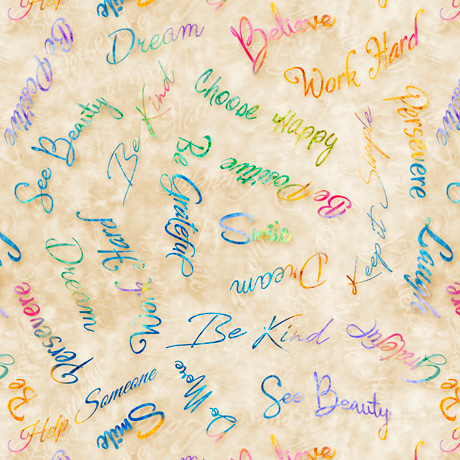 Smile
Dream
Believe
Work Hard
Be Positive
Be Kind
Choose Happy
Persevere
See Beauty
Be Grateful
Be Positive
Be
Keep it Simple
Smile
Dream
Laugh
Work Hard
Dream
Persevere
Be Kind
Grateful
Be
Help Someone
Do More
See Beauty
Smile
Believe